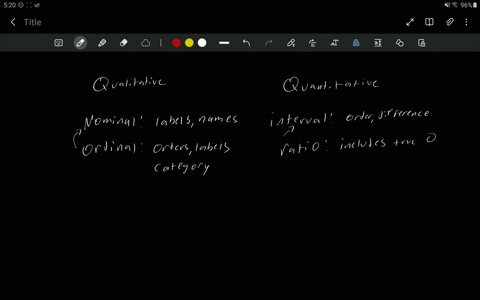 5:20
96%
Title
Qualitative
Quantitative
Nominal: labels, names
Ordinal: orders, labels
category
interval: order, difference
ratio: includes true 0